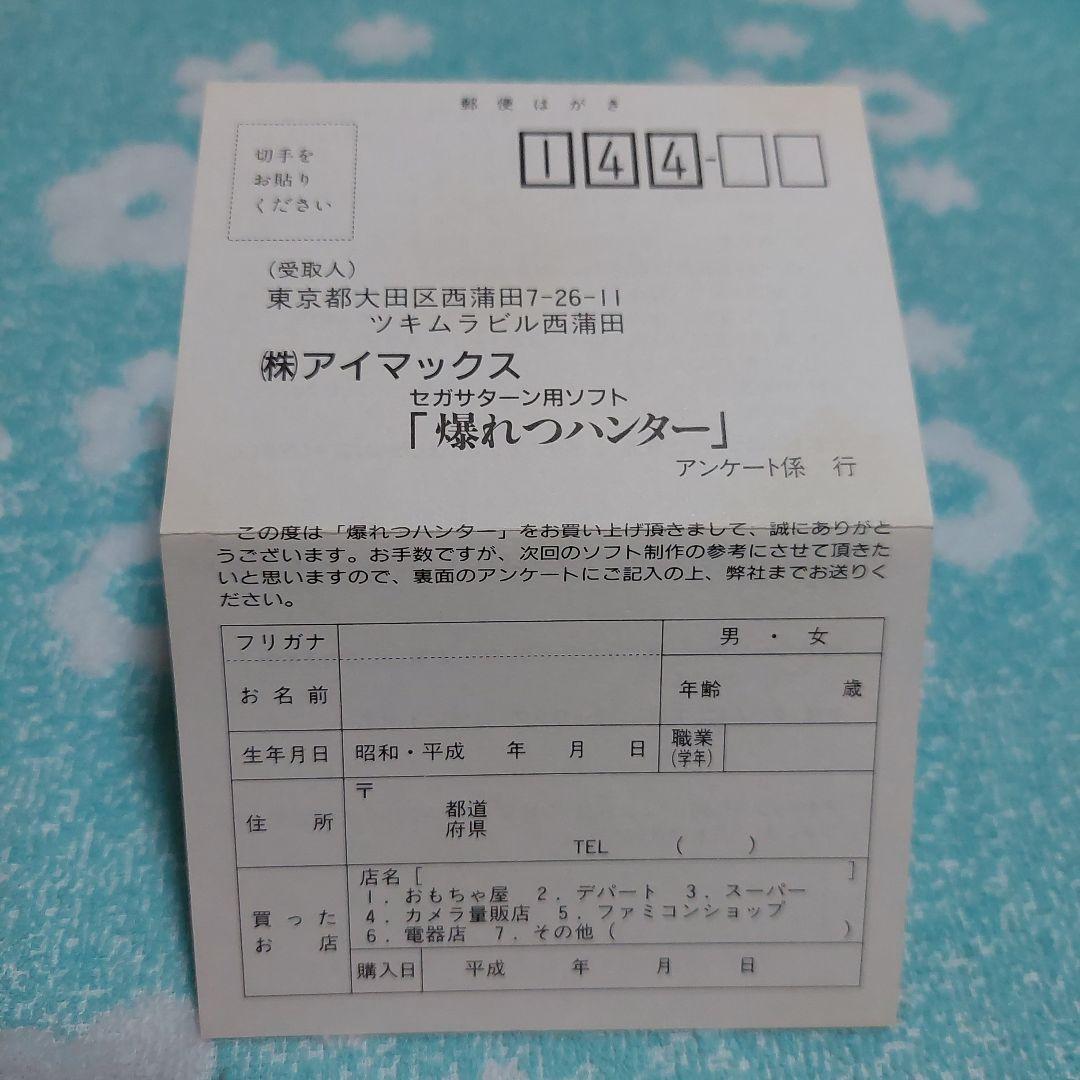 郵便はがき
切手を
お貼り
ください
144-
(受取人)
東京都大田区西蒲田7-26-11
ツキムラビル西蒲田
㈱アイマックス
セガサターン用ソフト
「爆れつハンター」
アンケート係 行
この度は「爆れつハンター」をお買い上げ頂きまして、誠にありがと
うございます。お手数ですが、次回のソフト制作の参考にさせて頂きた
いと思いますので、裏面のアンケートにご記入の上、弊社までお送りく
ださい。
フリガナ
男・女
お名前
年齢 歳
生年月日
昭和・平成 年 月 日
職業
(学年)
住所
〒
都道
府県
TEL ( )
買った
お店
店名[ ]
1. おもちゃ屋 2. デパート 3. スーパー
4. カメラ量販店 5. ファミコンショップ
6. 電器店 7. その他( )
購入日
平成 年 月 日